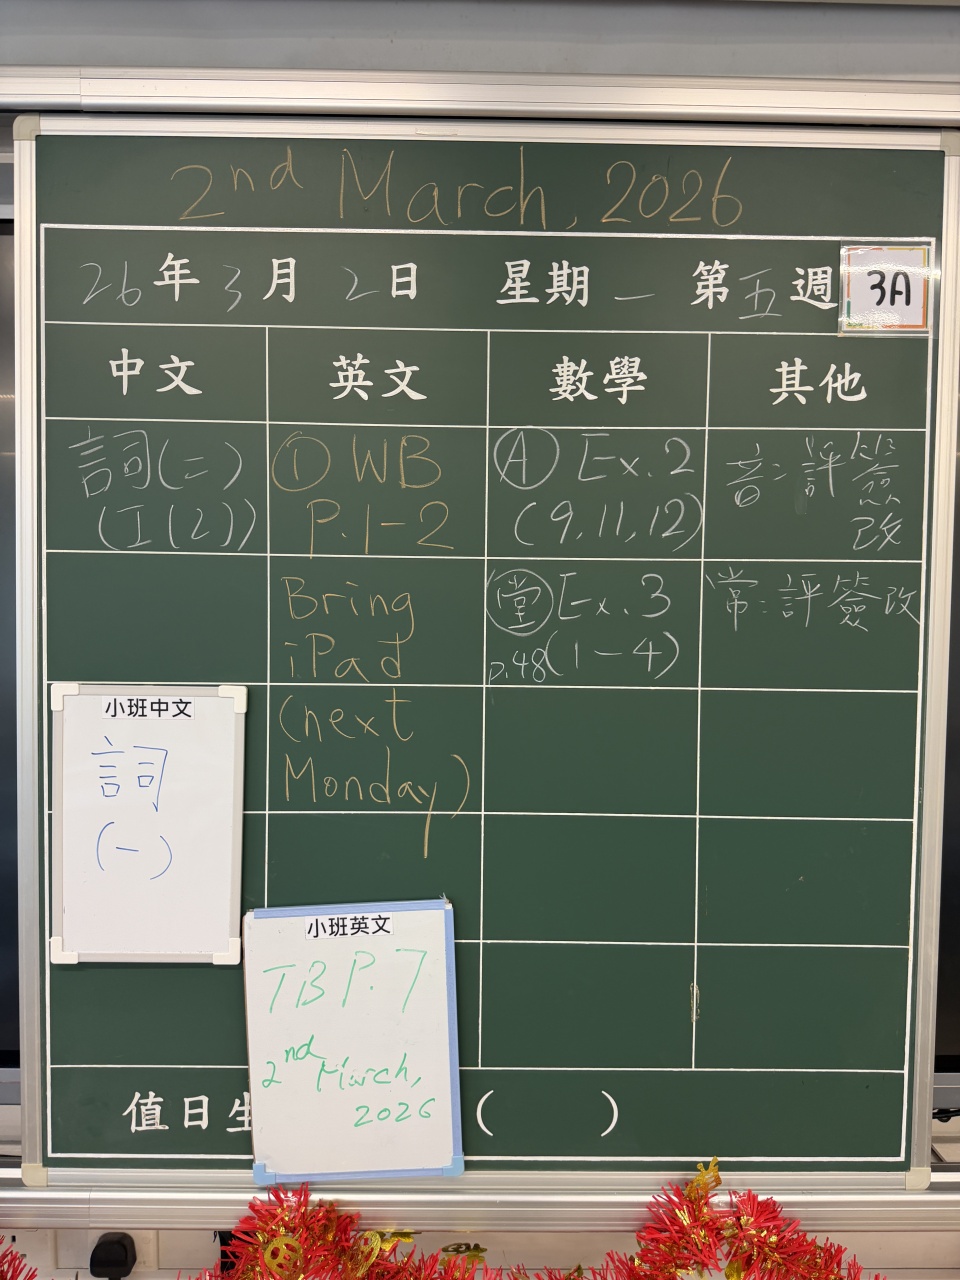 2nd March, 2026
26年3月2日 星期一 第五週 3A
中文 英文 數學 其他
詞(二)
(I(2))
① WB
P.1-2
Bring
iPad
(next
Monday)
Ⓐ Ex.2
(9,11,12)
堂 Ex.3
p.48(1-4)
音:評簽
改
常:評簽改
小班中文
詞
(一)
小班英文
TB P.7
2nd March,
2026
值日生 ( )